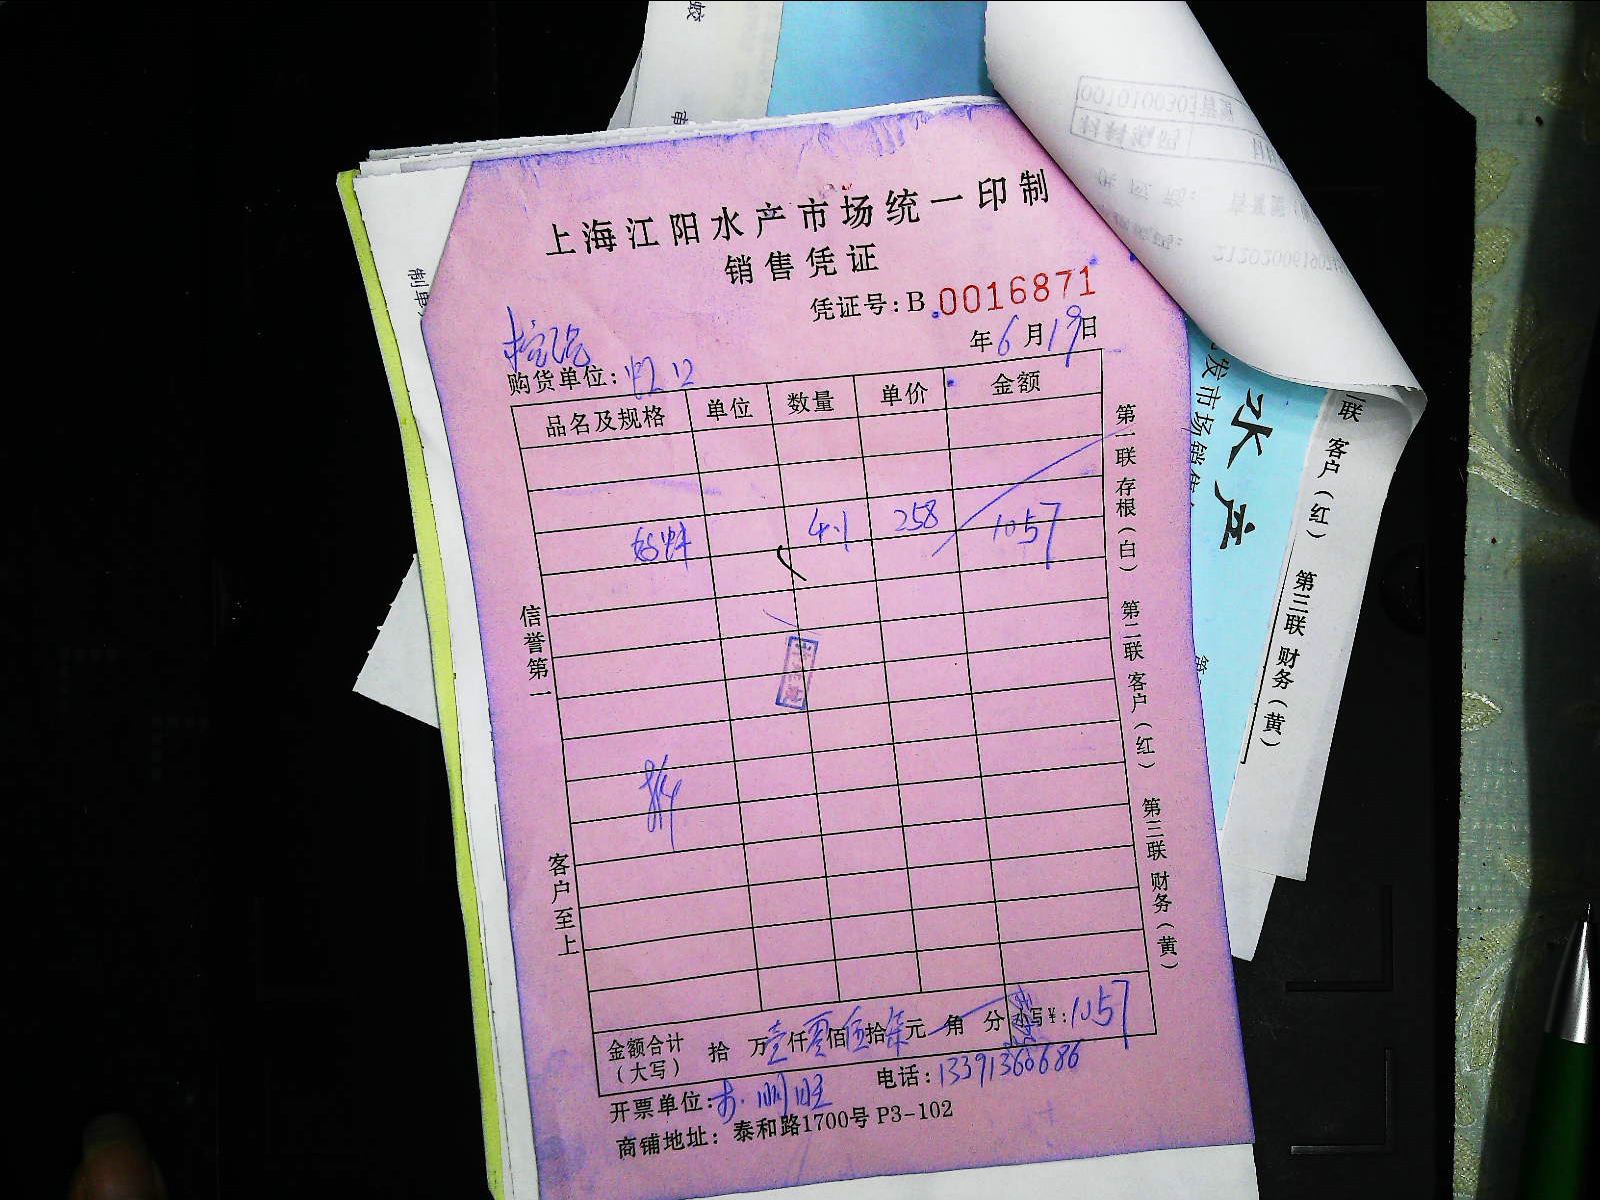 上海江阳水产市场统一印制
销售凭证
凭证号:B 0016871
年6月19日
购货单位:
品名及规格 单位 数量 单价 金额
4.1 258 1057
信誉第一
客户至上
第一联 存根(白) 第二联 客户(红) 第三联 财务(黄)
金额合计(大写) 拾 万壹仟零佰伍拾柒元 角 分 小写¥:1057
开票单位:
电话:13391360686
商铺地址: 泰和路1700号 P3-102
水产
发市场销售
二联 客户(红) 第三联 财务(黄)
制单